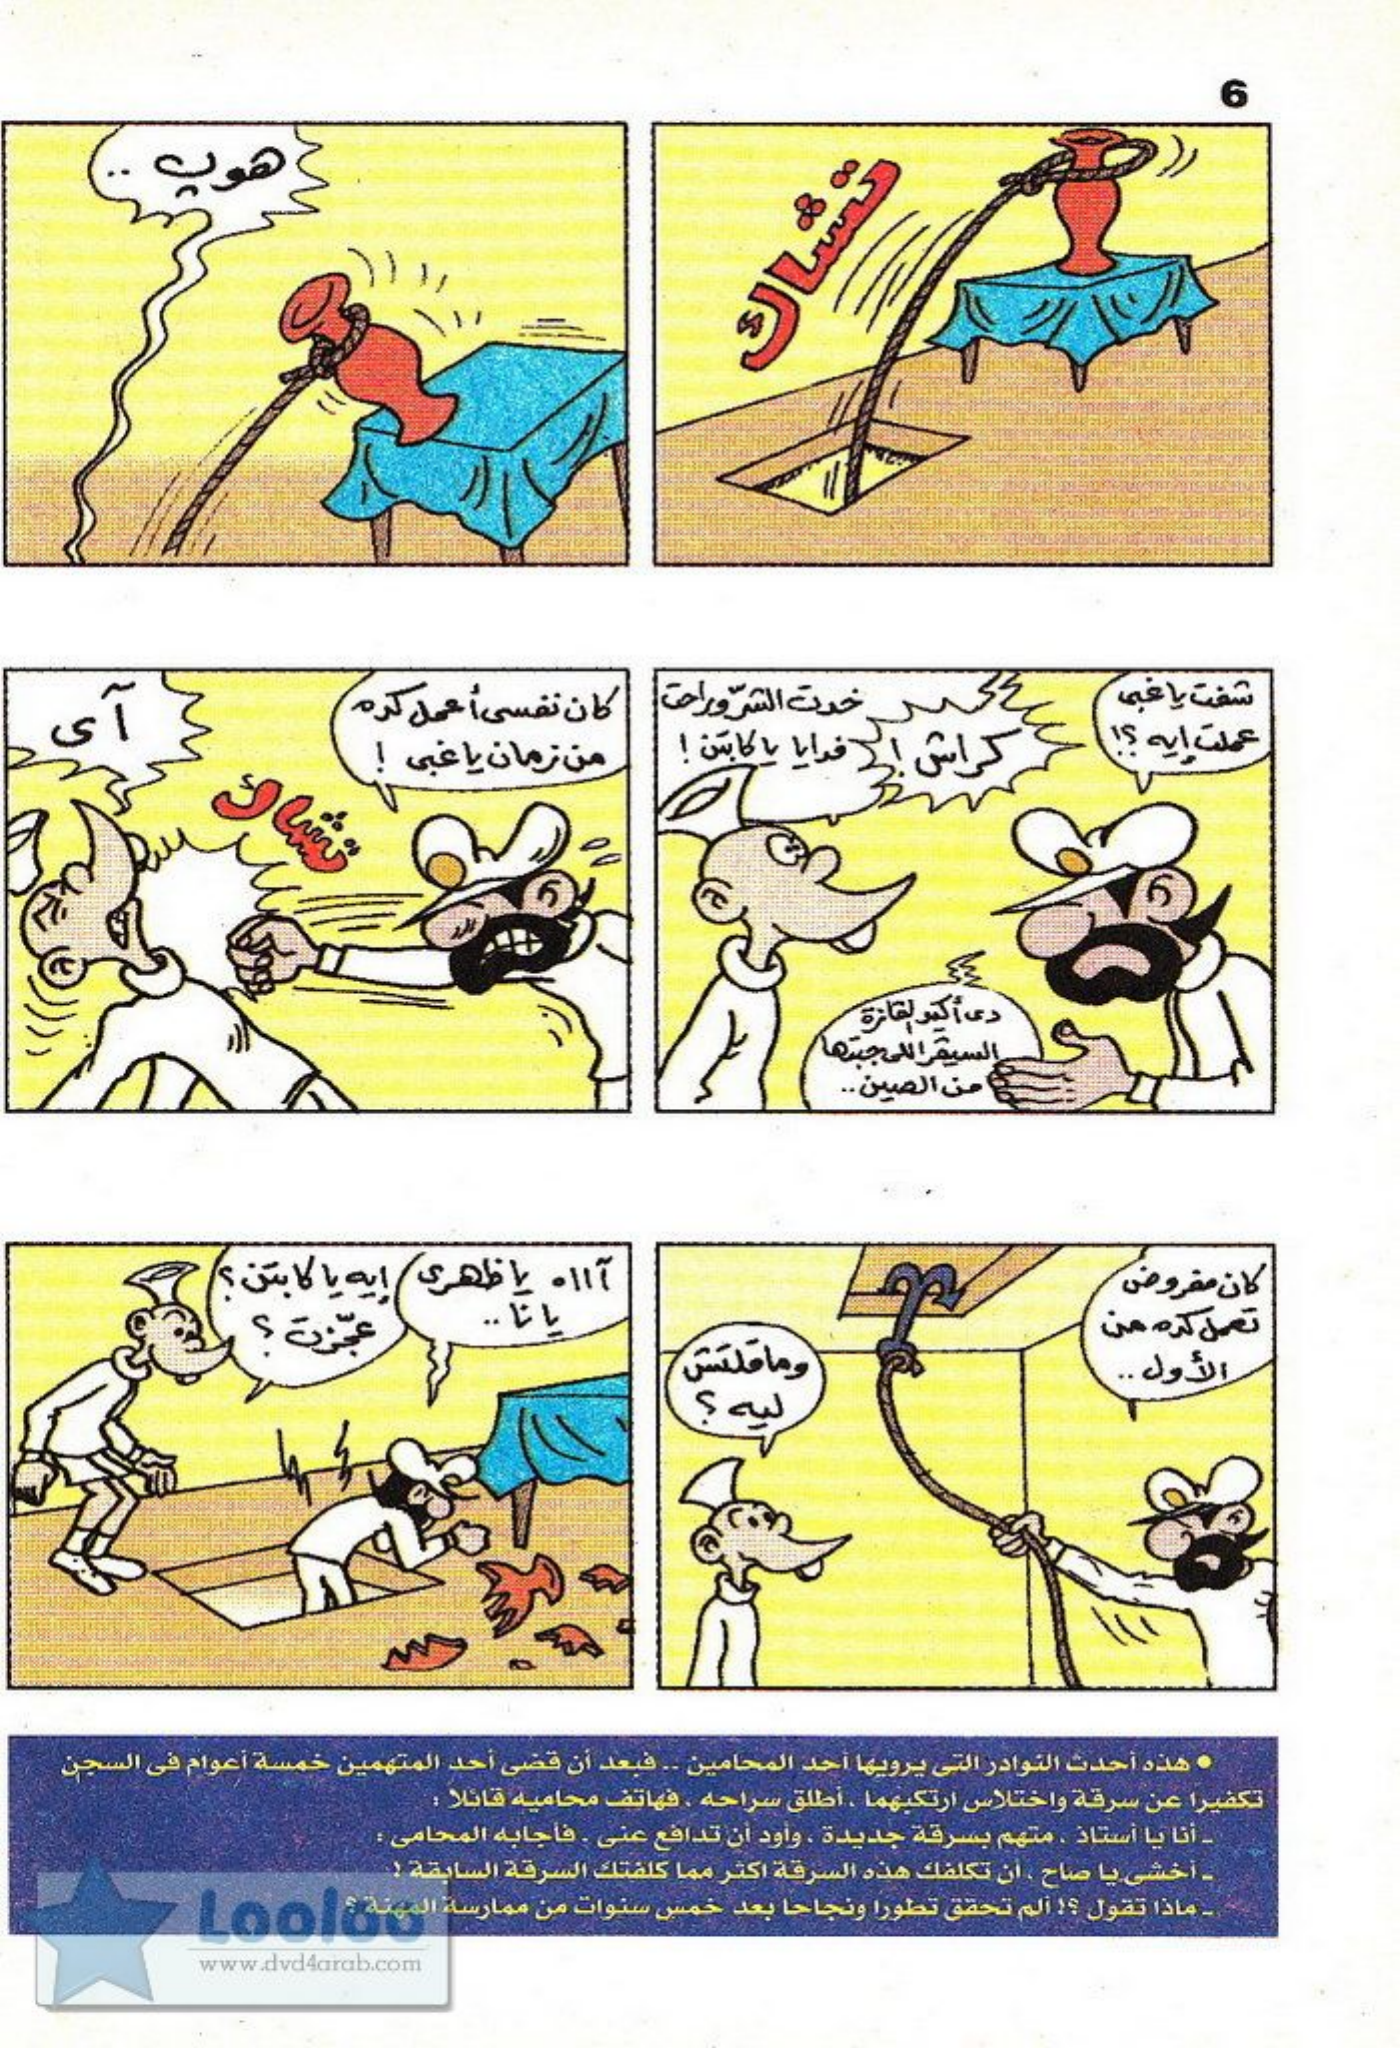 6
تشاك
هوپ ..
شفت ياغبى
عملت إيه ؟!
كراش !
خدت الشرّ وراحت
فدايا يا كابتن !
دى أكيد لفازة
السيڤر اللى جبتها
من الصين ..
كان نفسى أعمل كده
من زمان ياغبى !
تشاك
آى
كان مفروض
تعمل كده من
الأول ..
وماقلتش
ليه ؟
آااه يا ظهرى
يا نا ..
إيه يا كابتن ؟
عجّزت ؟
• هذه أحدث النوادر التى يرويها أحد المحامين .. فبعد أن قضى أحد المتهمين خمسة أعوام فى السجن
تكفيرا عن سرقة واختلاس ارتكبهما ، أطلق سراحه ، فهاتف محاميه قائلا :
ـ أنا يا أستاذ ، متهم بسرقة جديدة ، وأود أن تدافع عنى . فأجابه المحامى :
ـ أخشى يا صاح ، أن تكلفك هذه السرقة اكثر مما كلفتك السرقة السابقة !
ـ ماذا تقول ؟! ألم تحقق تطورا ونجاحا بعد خمس سنوات من ممارسة المهنة ؟
Looloo
www.dvd4arab.com